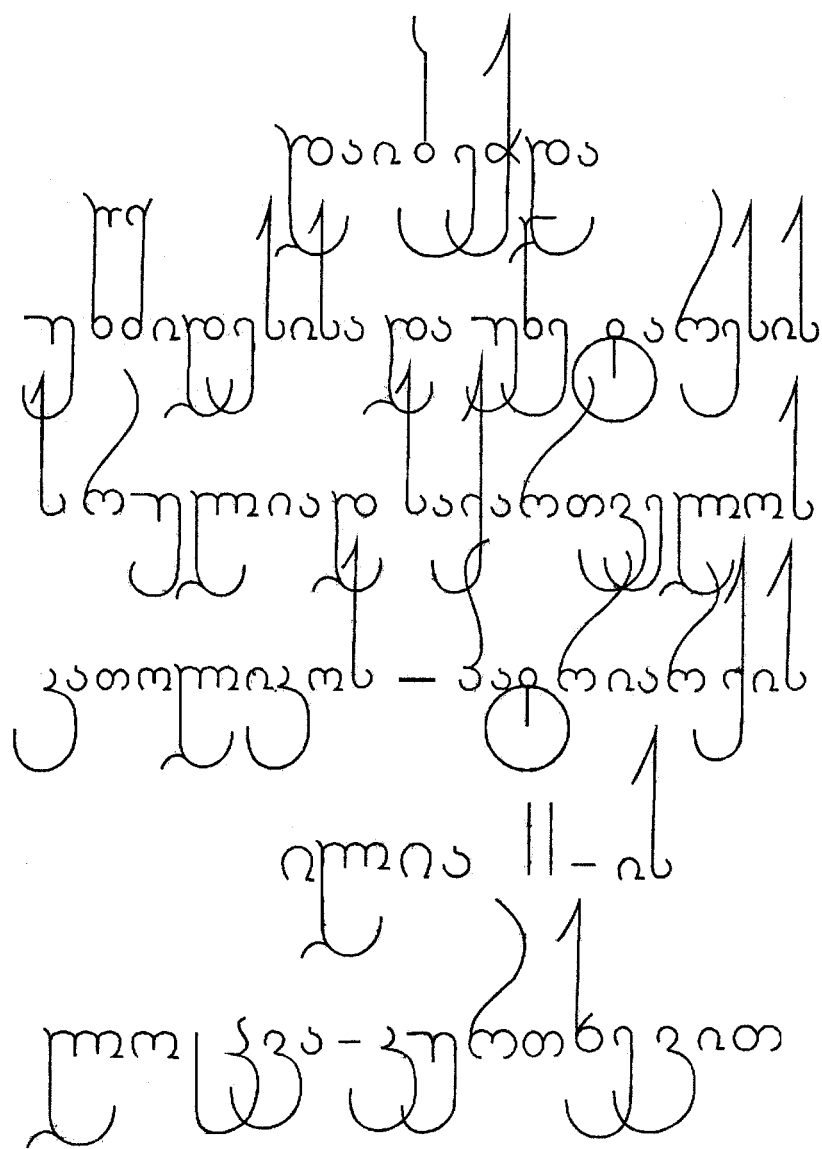 დაიბეჭდა
უწმიდესისა და უნეტარესის
სრულიად საქართველოს
კათოლიკოს – პატრიარქის
ილია II – ის
ლოცვა – კურთხევით